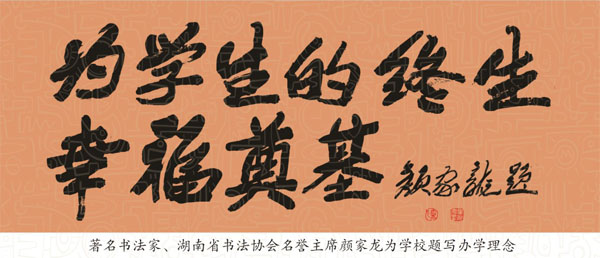 为学生的终生
幸福奠基
颜家龙题
著名书法家、湖南省书法协会名誉主席颜家龙为学校题写办学理念